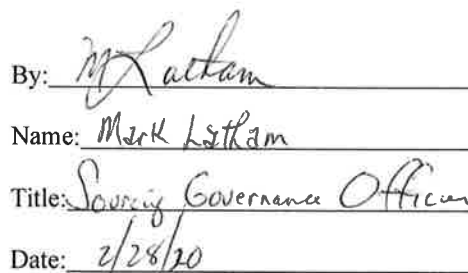 By: M Latham
Name: Mark Latham
Title: Sourcing Governance Officer
Date: 2/28/20